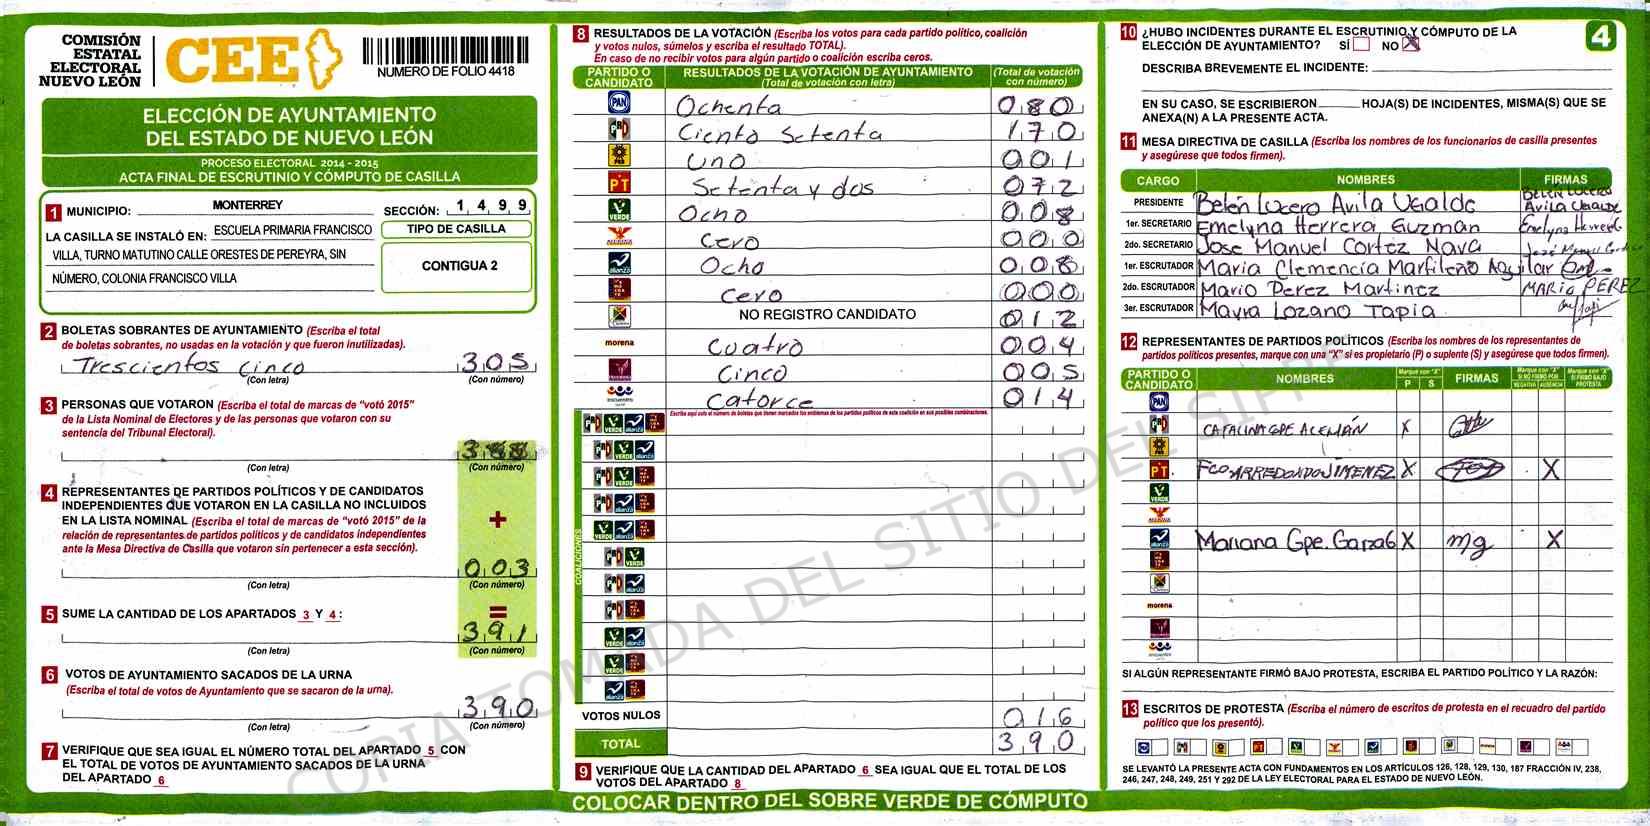 COMISIÓN
ESTATAL
ELECTORAL
NUEVO LEÓN
CEE
NUMERO DE FOLIO 4418
ELECCIÓN DE AYUNTAMIENTO
DEL ESTADO DE NUEVO LEÓN
PROCESO ELECTORAL 2014 - 2015
ACTA FINAL DE ESCRUTINIO Y CÓMPUTO DE CASILLA
1 MUNICIPIO: MONTERREY SECCIÓN: 1 4 9 9
LA CASILLA SE INSTALÓ EN: ESCUELA PRIMARIA FRANCISCO
VILLA, TURNO MATUTINO CALLE ORESTES DE PEREYRA, SIN
NÚMERO, COLONIA FRANCISCO VILLA
TIPO DE CASILLA
CONTIGUA 2
2 BOLETAS SOBRANTES DE AYUNTAMIENTO (Escriba el total
de boletas sobrantes, no usadas en la votación y que fueron inutilizadas).
Trescientos cinco 305
(Con letra) (Con número)
3 PERSONAS QUE VOTARON (Escriba el total de marcas de "votó 2015"
de la Lista Nominal de Electores y de las personas que votaron con su
sentencia del Tribunal Electoral).
388
(Con letra) (Con número)
4 REPRESENTANTES DE PARTIDOS POLÍTICOS Y DE CANDIDATOS
INDEPENDIENTES QUE VOTARON EN LA CASILLA NO INCLUIDOS
EN LA LISTA NOMINAL (Escriba el total de marcas de "votó 2015" de la
relación de representantes de partidos políticos y de candidatos independientes
ante la Mesa Directiva de Casilla que votaron sin pertenecer a esta sección).
+
003
(Con letra) (Con número)
5 SUME LA CANTIDAD DE LOS APARTADOS 3 Y 4 :
=
391
(Con letra) (Con número)
6 VOTOS DE AYUNTAMIENTO SACADOS DE LA URNA
(Escriba el total de votos de Ayuntamiento que se sacaron de la urna).
390
(Con letra) (Con número)
7 VERIFIQUE QUE SEA IGUAL EL NÚMERO TOTAL DEL APARTADO 5 CON
EL TOTAL DE VOTOS DE AYUNTAMIENTO SACADOS DE LA URNA
DEL APARTADO 6
8 RESULTADOS DE LA VOTACIÓN (Escriba los votos para cada partido político, coalición
y votos nulos, súmelos y escriba el resultado TOTAL).
En caso de no recibir votos para algún partido o coalición escriba ceros.
PARTIDO O CANDIDATO RESULTADOS DE LA VOTACIÓN DE AYUNTAMIENTO (Total de votación con letra) (Total de votación con número)
PAN Ochenta 080
PRD Ciento Setenta 170
PRD Uno 001
PT Setenta y dos 072
VERDE Ocho 008
Cero 000
alianza Ocho 008
Cero 000
NO REGISTRO CANDIDATO 012
morena Cuatro 004
Cinco 005
encuentro Catorce 014
Escriba aquí solo el número de boletas que tienen marcados los emblemas de los partidos políticos de esta coalición en sus posibles combinaciones.
COALICIONES
VOTOS NULOS 016
TOTAL 390
9 VERIFIQUE QUE LA CANTIDAD DEL APARTADO 6 SEA IGUAL QUE EL TOTAL DE LOS
VOTOS DEL APARTADO 8
COLOCAR DENTRO DEL SOBRE VERDE DE CÓMPUTO
4
10 ¿HUBO INCIDENTES DURANTE EL ESCRUTINIO Y CÓMPUTO DE LA
ELECCIÓN DE AYUNTAMIENTO? SÍ NO X
DESCRIBA BREVEMENTE EL INCIDENTE:
EN SU CASO, SE ESCRIBIERON HOJA(S) DE INCIDENTES, MISMA(S) QUE SE
ANEXA(N) A LA PRESENTE ACTA.
11 MESA DIRECTIVA DE CASILLA (Escriba los nombres de los funcionarios de casilla presentes
y asegúrese que todos firmen).
CARGO NOMBRES FIRMAS
PRESIDENTE Belén Lucero Avila Ugalde Belén Lucero Avila Ugalde
1er. SECRETARIO Emelyna Herrera Guzman Emelyna Herrera
2do. SECRETARIO Jose Manuel Cortez Nava
1er. ESCRUTADOR Maria Clemencia Marfileño Aguilar
2do. ESCRUTADOR Mario Perez Martinez MARIO PEREZ
3er. ESCRUTADOR Mayra Lozano Tapia
12 REPRESENTANTES DE PARTIDOS POLÍTICOS (Escriba los nombres de los representantes de
partidos políticos presentes, marque con una "X" si es propietario (P) o suplente (S) y asegúrese que todos firmen).
PARTIDO O CANDIDATO NOMBRES Marque con "X" P S FIRMAS Marque con "X" SI NO FIRMÓ POR NEGATIVA AUSENCIA Marque con "X" SI FIRMÓ BAJO PROTESTA
PAN
CATALINA GPE ALEMÁN X
PT FCO ARREDONDO JIMENEZ X X
VERDE
alianza Mariana Gpe. Garza G X mg X
morena
encuentro
SI ALGÚN REPRESENTANTE FIRMÓ BAJO PROTESTA, ESCRIBA EL PARTIDO POLÍTICO Y LA RAZÓN:
13 ESCRITOS DE PROTESTA (Escriba el número de escritos de protesta en el recuadro del partido
político que los presentó).
SE LEVANTÓ LA PRESENTE ACTA CON FUNDAMENTOS EN LOS ARTÍCULOS 126, 128, 129, 130, 187 FRACCIÓN IV, 238,
246, 247, 248, 249, 251 Y 292 DE LA LEY ELECTORAL PARA EL ESTADO DE NUEVO LEÓN.
COPIA TOMADA DEL SITIO DEL SIPRE